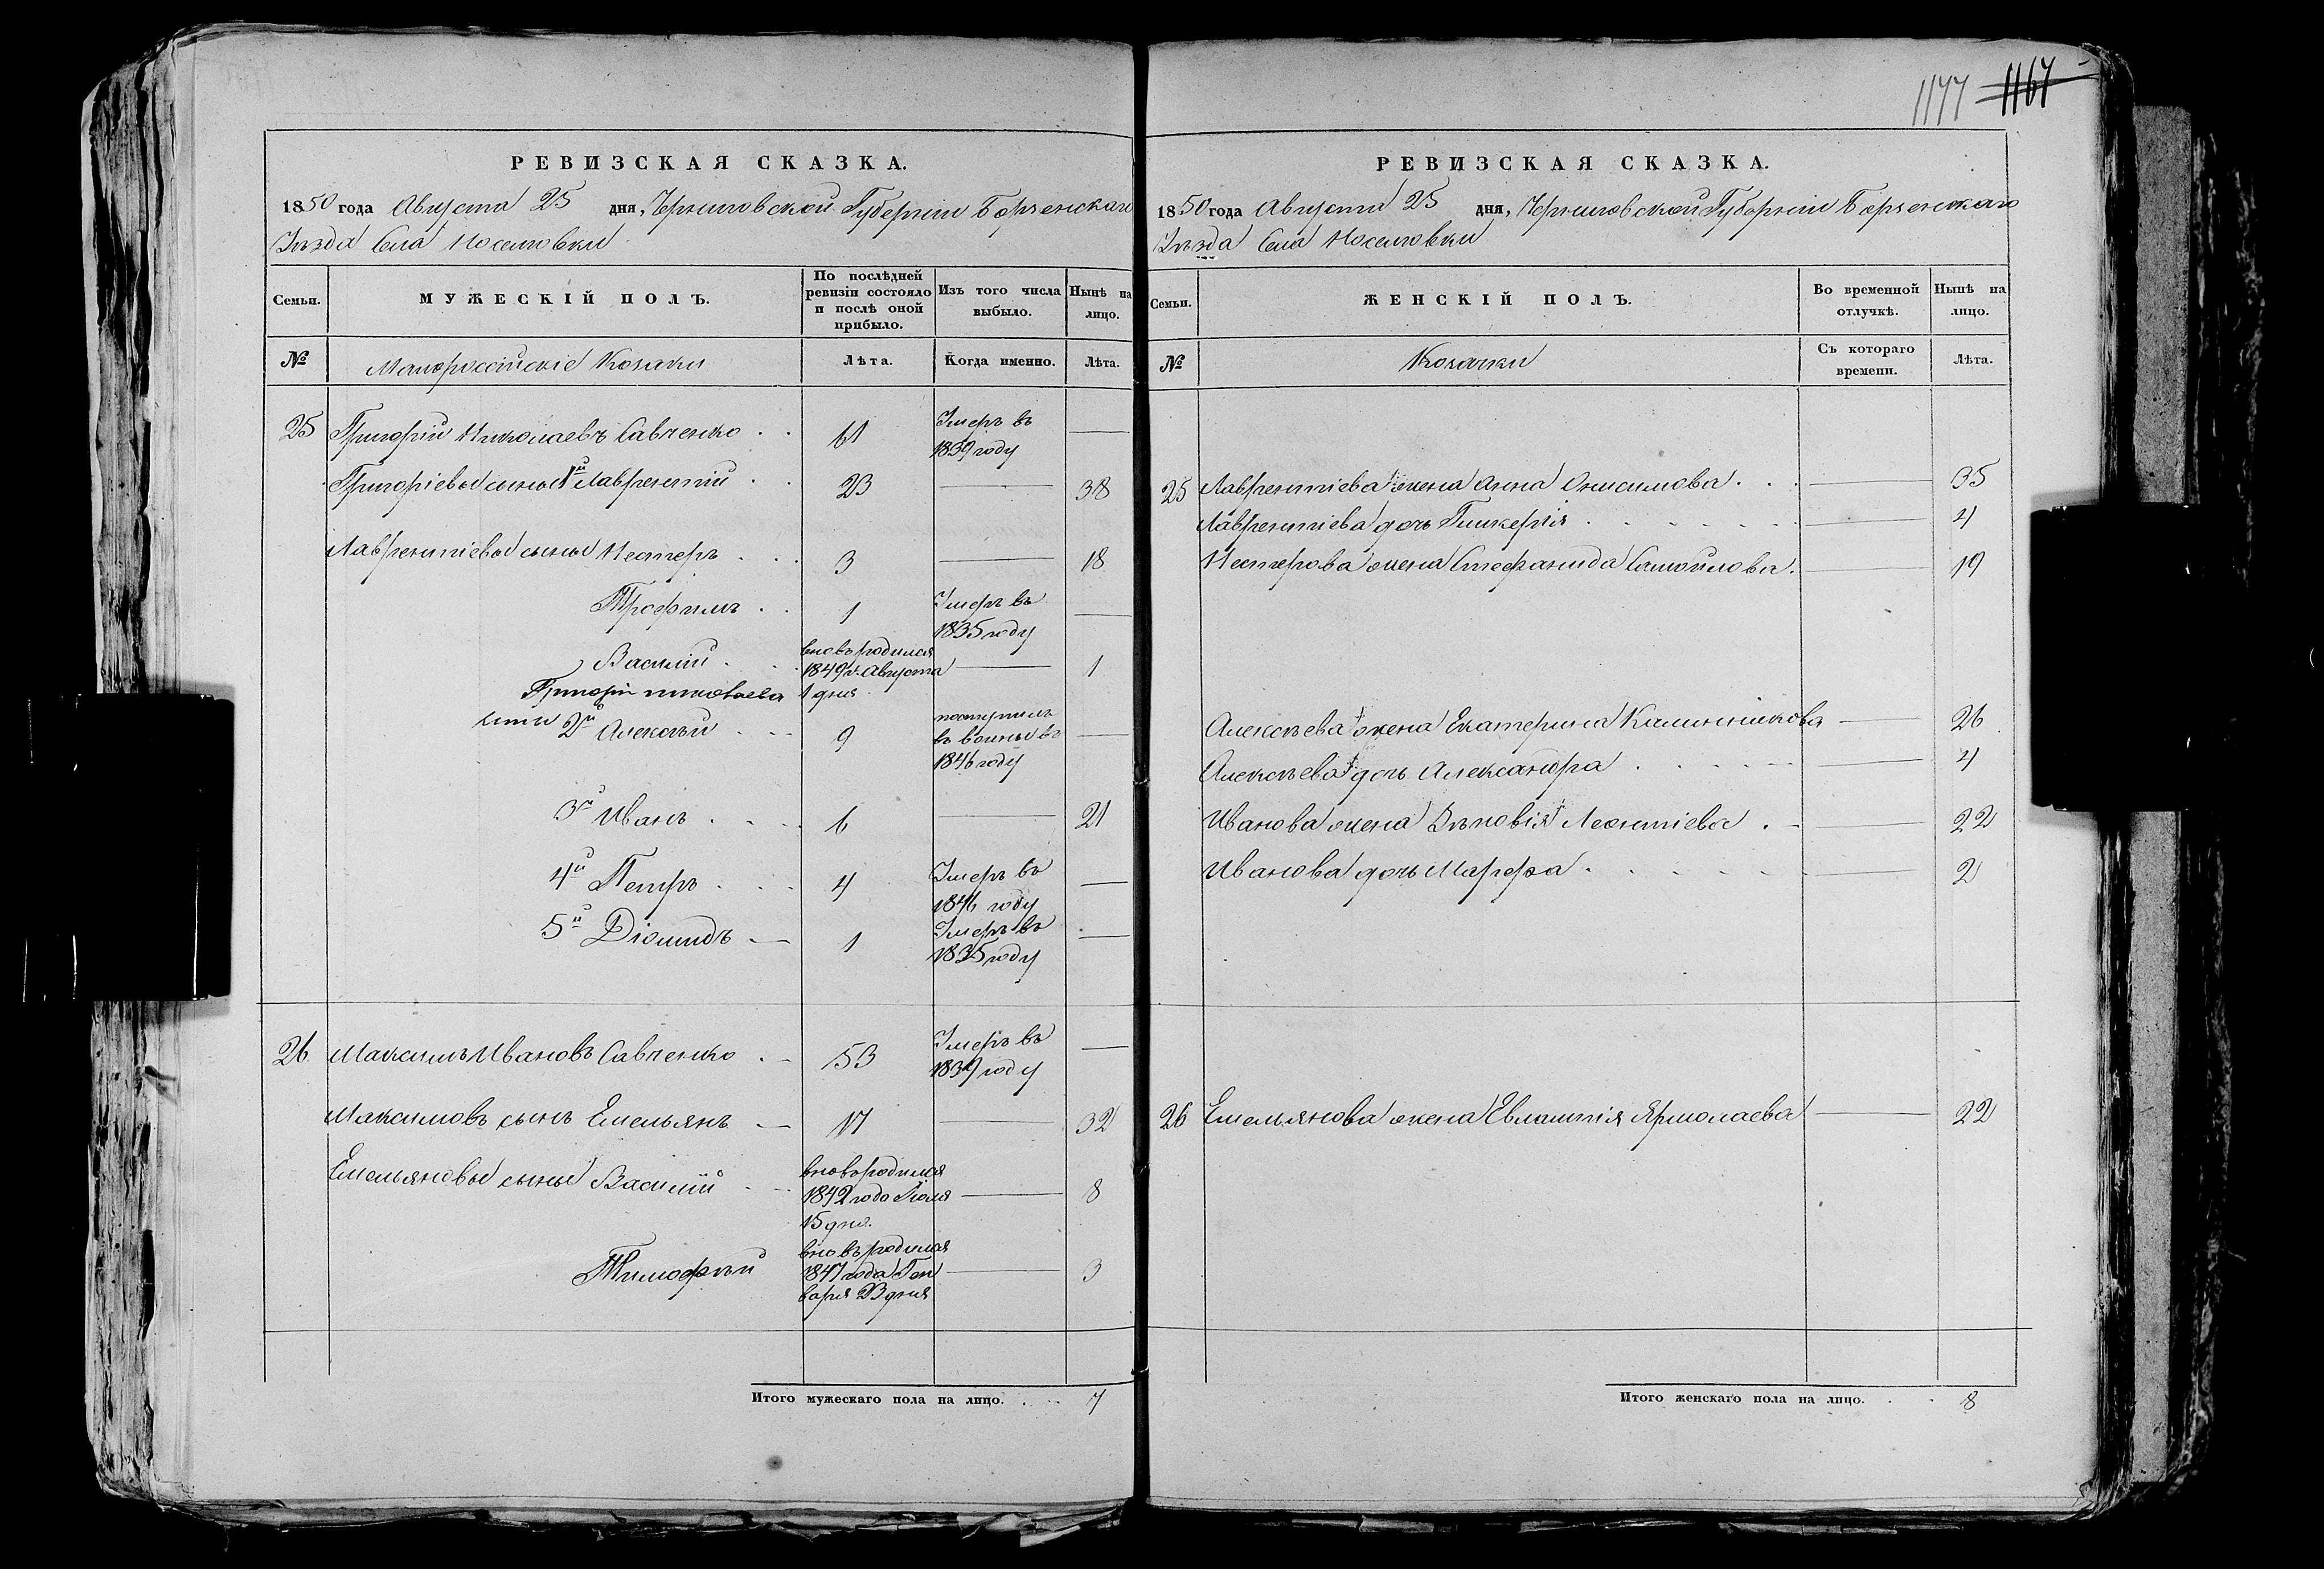 1177 1167
РЕВИЗСКАЯ СКАЗКА.
1850 года Августа 25 дня, Черниговской Губерніи Борзенскаго
Уѣзда Села Носеловки
Семьи. МУЖЕСКІЙ ПОЛЪ. По послѣдней ревизіи состояло и послѣ оной прибыло. Изъ того числа выбыло. Нынѣ на лицо.
№ Малороссійскіе Козаки Лѣта. Когда именно. Лѣта.
25 Григорій Николаевъ Савченко 61 Умеръ въ 1839 году
Григоріевы сыны 1й Лаврентій 23 38
Лаврентіевы сыны Нестеръ 3 18
Трофимъ 1 Умеръ въ 1835 году
Василій вновь родился 1849 г. Августа 1 дня 1
Григорія Николаева
сыны 2й Алексѣй 9 поступилъ въ воины въ 1846 году
3й Иванъ 6 21
4й Петръ 4 Умеръ въ 1846 году
5й Діомидъ 1 Умеръ въ 1835 году
26 Максимъ Ивановъ Савченко 53 Умеръ въ 1839 году
Максимовъ сынъ Емельянъ 17 32
Емельяновы сыны Василій вновь родился 1842 года Іюля 15 дня 8
Тимофѣй вновь родился 1847 года Генваря 23 дня 3
Итого мужескаго пола на лицо. 7
РЕВИЗСКАЯ СКАЗКА.
1850 года Августа 25 дня, Черниговской Губерніи Борзенскаго
Уѣзда Села Носеловки
Семьи. ЖЕНСКІЙ ПОЛЪ. Во временной отлучкѣ. Нынѣ на лицо.
№ Козачки Съ котораго времени. Лѣта.
25 Лаврентіева жена Анна Онисимова 35
Лаврентіева дочь Гликерія 4
Нестерова жена Стефанида Самойлова 19
Алексѣева жена Екатерина Калинникова 26
Алексѣева дочь Александра 4
Иванова жена Зѣновія Леонтіева 22
Иванова дочь Марфа 2
26 Емельянова жена Евлампія Ярмолаева 22
Итого женскаго пола на лицо. 8